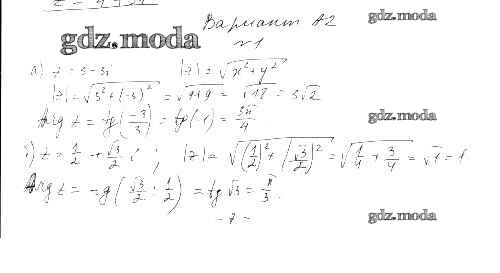 gdz.moda
Вариант А2
gdz.moda
№1
а) z = 3 - 3i |z| = √(x² + y²)
|z| = √(3² + (-3)²) = √(9+9) = √18 = 3√2
Arg z = tg(-3/3) = tg(-1) = 3π/4
gdz.moda
z = 1/2 + √3/2 i ; |z| = √((1/2)² + (√3/2)²) = √(1/4 + 3/4) = √1 = 1
Arg z = tg(√3/2 : 1/2) = tg √3 = π/3.
- z =
gdz.moda